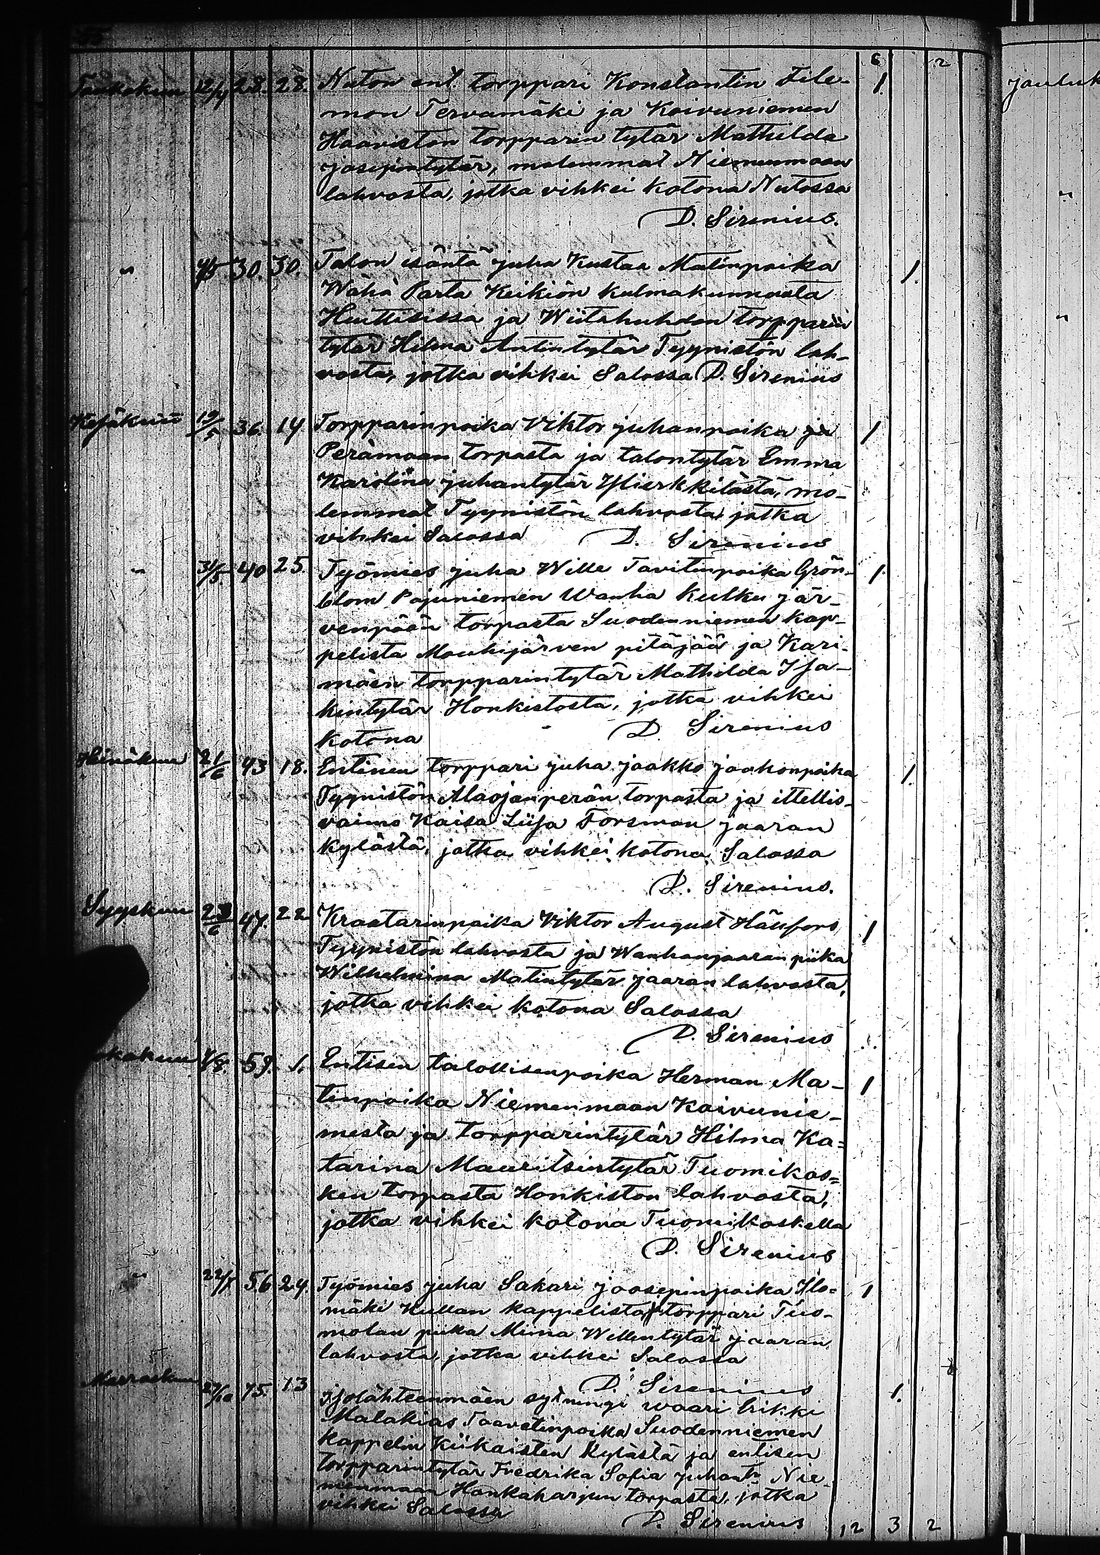 6 2
Toukokuu 12/4 28. 28. Nuton ent. torppari Konstantin File- 1.
mon Tervamäki ja Koivuniemen
Haaviston torpparin tytär Mathilda
Josepintytär, molemmat Niemenmaan
lahvosta, jotka vihkei kotona Nutossa
D. Sirenius.
" 4/5. 30. 30. Talon isäntä Juha Kustaa Matinpoika 1.
Wähä Parta Keikiön kulmakunnasta
Huittisissa ja Wiitahuhdan torpparin
tytär Hilma Antintytär Tyynistön lah-
vosta, jotka vihkei Salossa D. Sirenius
Kesäkuu 19/5 36. 14 Torpparinpoika Viktor Juhanpoika 1
Perämaan torpasta ja talontytär Emma
Karolina Juhantytär Ylierkkilästä, mo-
lemmat Tyynistön lahvosta, jotka
vihkei Salossa D. Sirenius
" 31/5 40 25. Työmies Juha Wille Tavitinpoika Grön- 1.
blom Pajuniemen Wanha Kulku jär-
venpään torpasta Suodenniemen kap-
pelista Mouhijärven pitäjää ja Kari-
mäen torpparintytär Mathilda Isa-
kintytär Honkistosta, jotka vihkei
kotona D. Sirenius
Heinäkuu 21/6 43 18. Entinen torppari Juha Jaakko Jaakonpoika 1.
Tyynistön Alaojanperän torpasta ja ittellis-
vaimo Kaisa Liisa Forsman Jaaran
kylästä, jotka vihkei kotona Salossa
D. Sirenius.
Syyskuu 23/6 47. 22 Kraatarinpoika Viktor August Hänfors 1
Tyyniston lahvosta ja Wanhanjaaran piika
Wilhelmina Matintytär Jaaran lahvosta,
jotka vihkei kotona Salossa
D. Sirenius
okakuu /8. 59. 1. Entisen talollisenpoika Herman Ma- 1
tinpoika Niemenmaan Koivunie-
mesta ja torpparintytär Hilma Ka-
tarina Mauritsintytär Tuomikos-
ken torpasta Honkiston lahvosta,
jotka vihkei kotona Tuomikoskella
D. Sirenius
" 22/ 56 24. Työmies Juha Sakari Joosepinpoika Ilo- 1
mäki Kullan kappelista torppari Tuo-
molan piika Miina Willentytär Jaaran
lahvosta, jotka vihkei Salossa
D. Sirenius
Marraskuu 27/10 75. 13 waari trikki 1.
Malakias Taavetinpoika Suodenniemen
kappelin Kiikaisten kylästä ja entisen
torpparintytär Fredrika Sofia Juhant. Nie-
menmaan Honkaharjun torpasta, jotka
vihkei Salossa
D. Sirenius
12 3 2